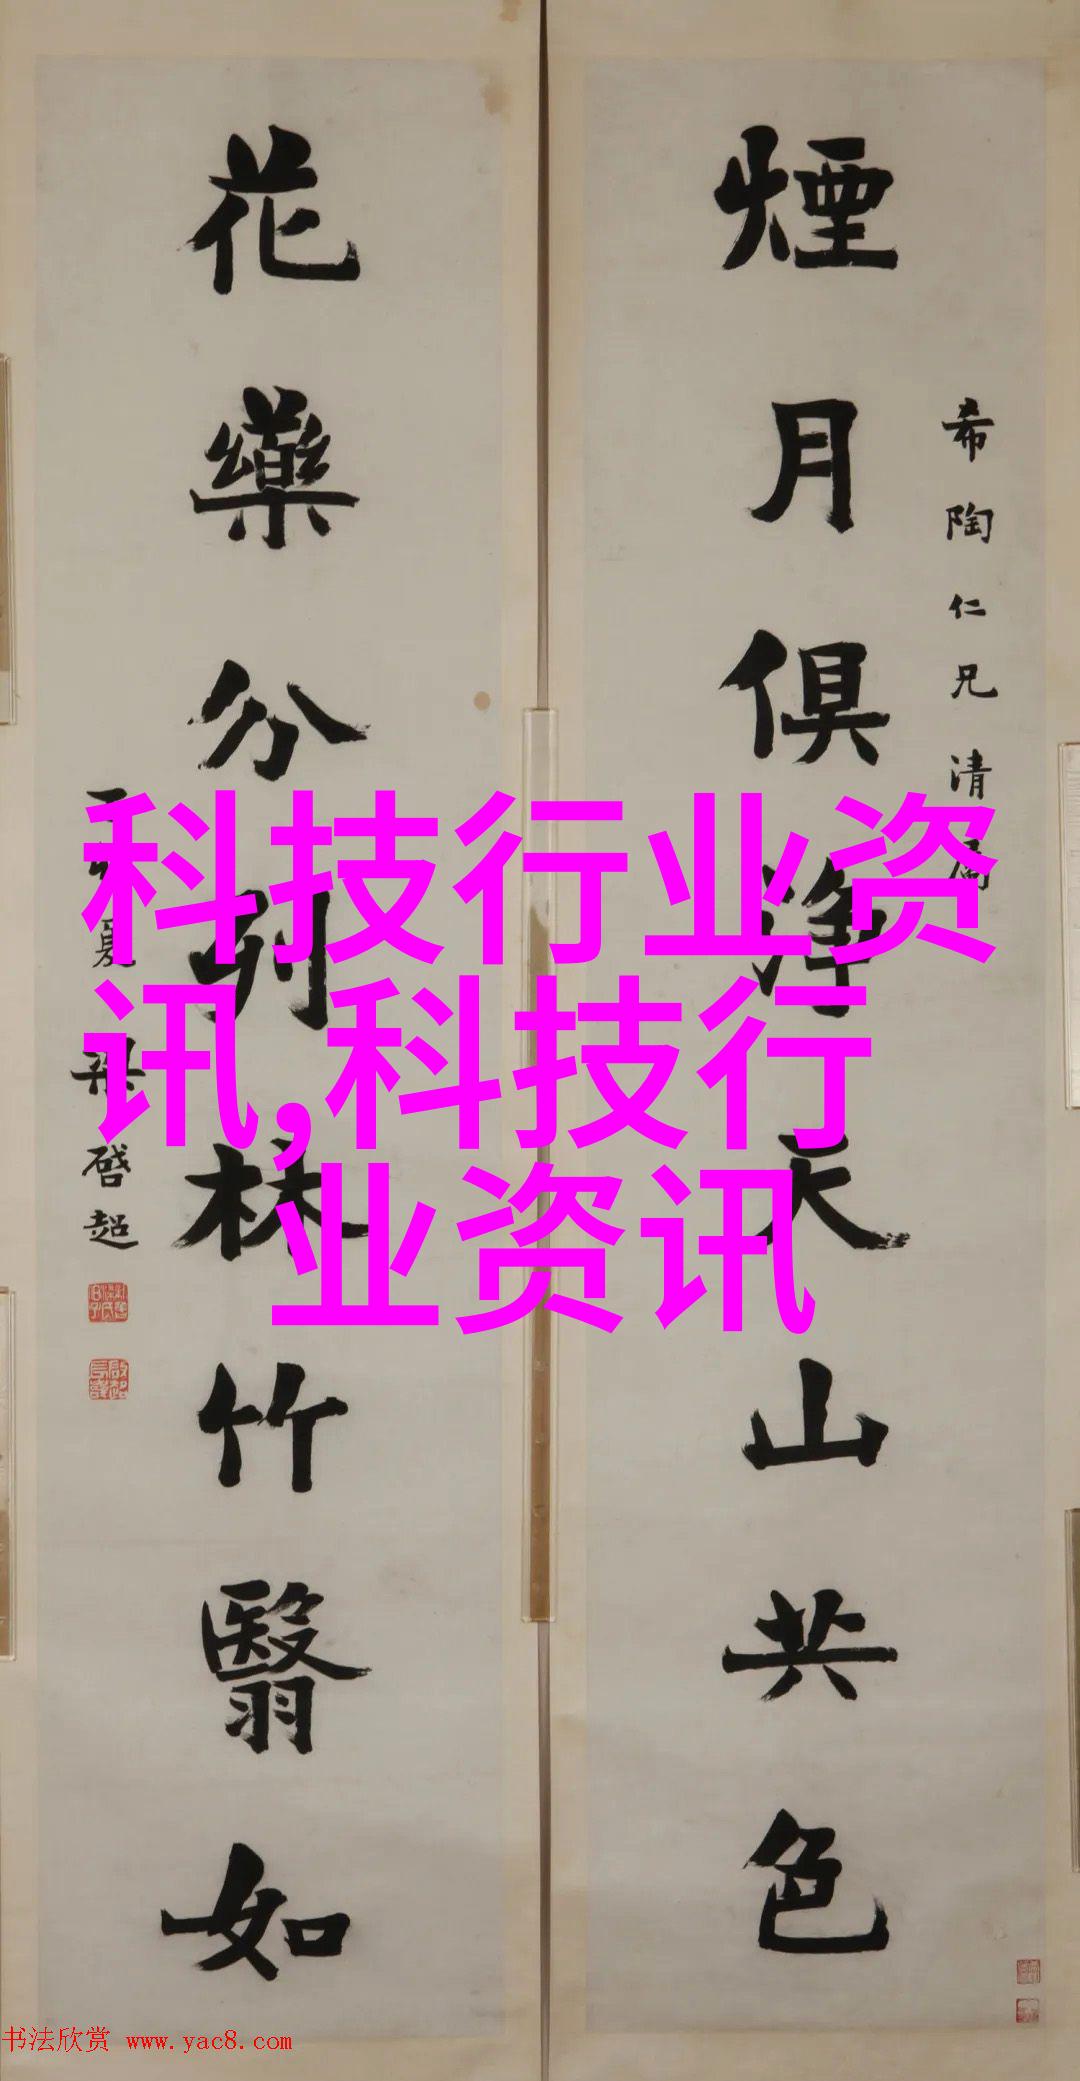 煙月俱淨天山共色
希陶仁兄清屬
花藥分列林竹翳如
夏梁啓超
科技行业资
讯,科技行
业资讯
书法欣赏 www.yac8.com